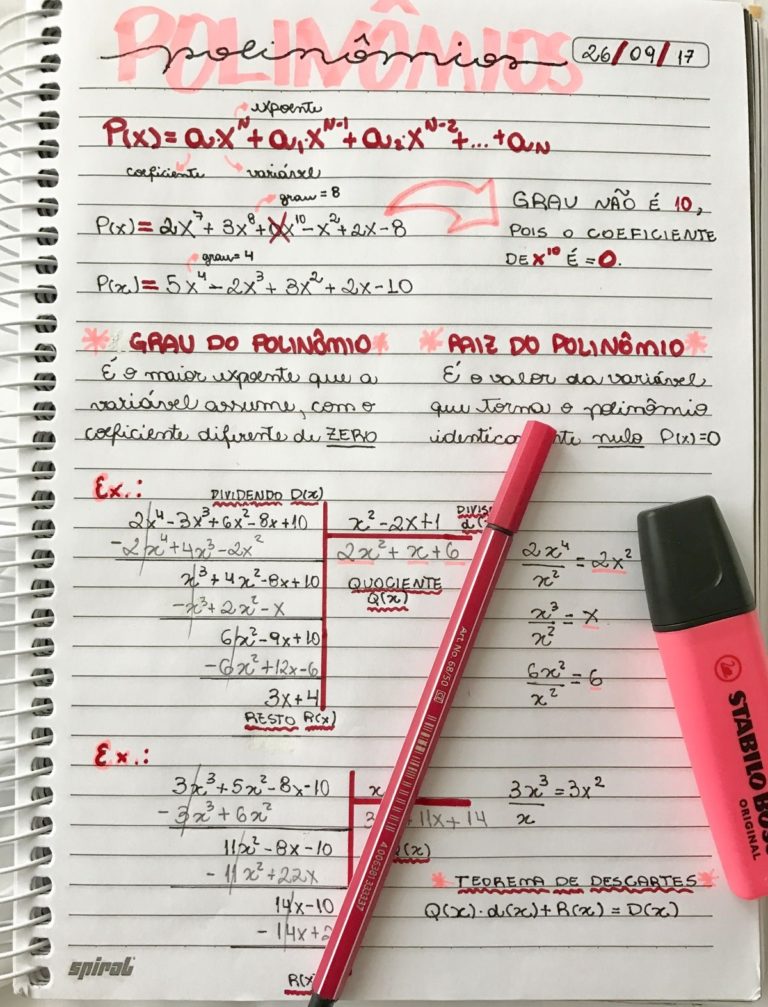 POLINÔMIOS
polinômios
26/09/17
expoente
P(x) = a·x^N + a₁·x^N-1 + a₂·x^N-2 + ... + aN
coeficiente variável
grau = 8
P(x) = 2x⁷ + 3x⁸ + 0x¹⁰ - x² + 2x - 8
GRAU NÃO É 10,
POIS O COEFICIENTE
DE x¹⁰ É = 0.
grau = 4
P(x) = 5x⁴ - 2x³ + 3x² + 2x - 10
* GRAU DO POLINÔMIO *
É o maior expoente que a
variável assume, com o
coeficiente diferente de ZERO
* RAIZ DO POLINÔMIO *
É o valor da variável
que torna o polinômio
nulo P(x)=0
Ex.:
DIVIDENDO D(x)
2x⁴ - 3x³ + 6x² - 8x + 10
x² - 2x + 1
-2x⁴ + 4x³ - 2x²
2x² + x + 6
x³ + 4x² - 8x + 10
QUOCIENTE
Q(x)
-x³ + 2x² - x
6x² - 9x + 10
-6x² + 12x - 6
3x + 4
RESTO R(x)
2x⁴/x² = 2x²
x³/x² = x
6x²/x² = 6
Ex.:
3x³ + 5x² - 8x - 10
x
- 3x³ + 6x²
+ 11x + 14
11x² - 8x - 10
- 11x² + 22x
14x - 10
- 14x + 2
3x³/x = 3x²
* TEOREMA DE DESCARTES *
Q(x)·d(x) + R(x) = D(x)
spiral
Art.No. 68/50
STABILO BOSS
ORIGINAL